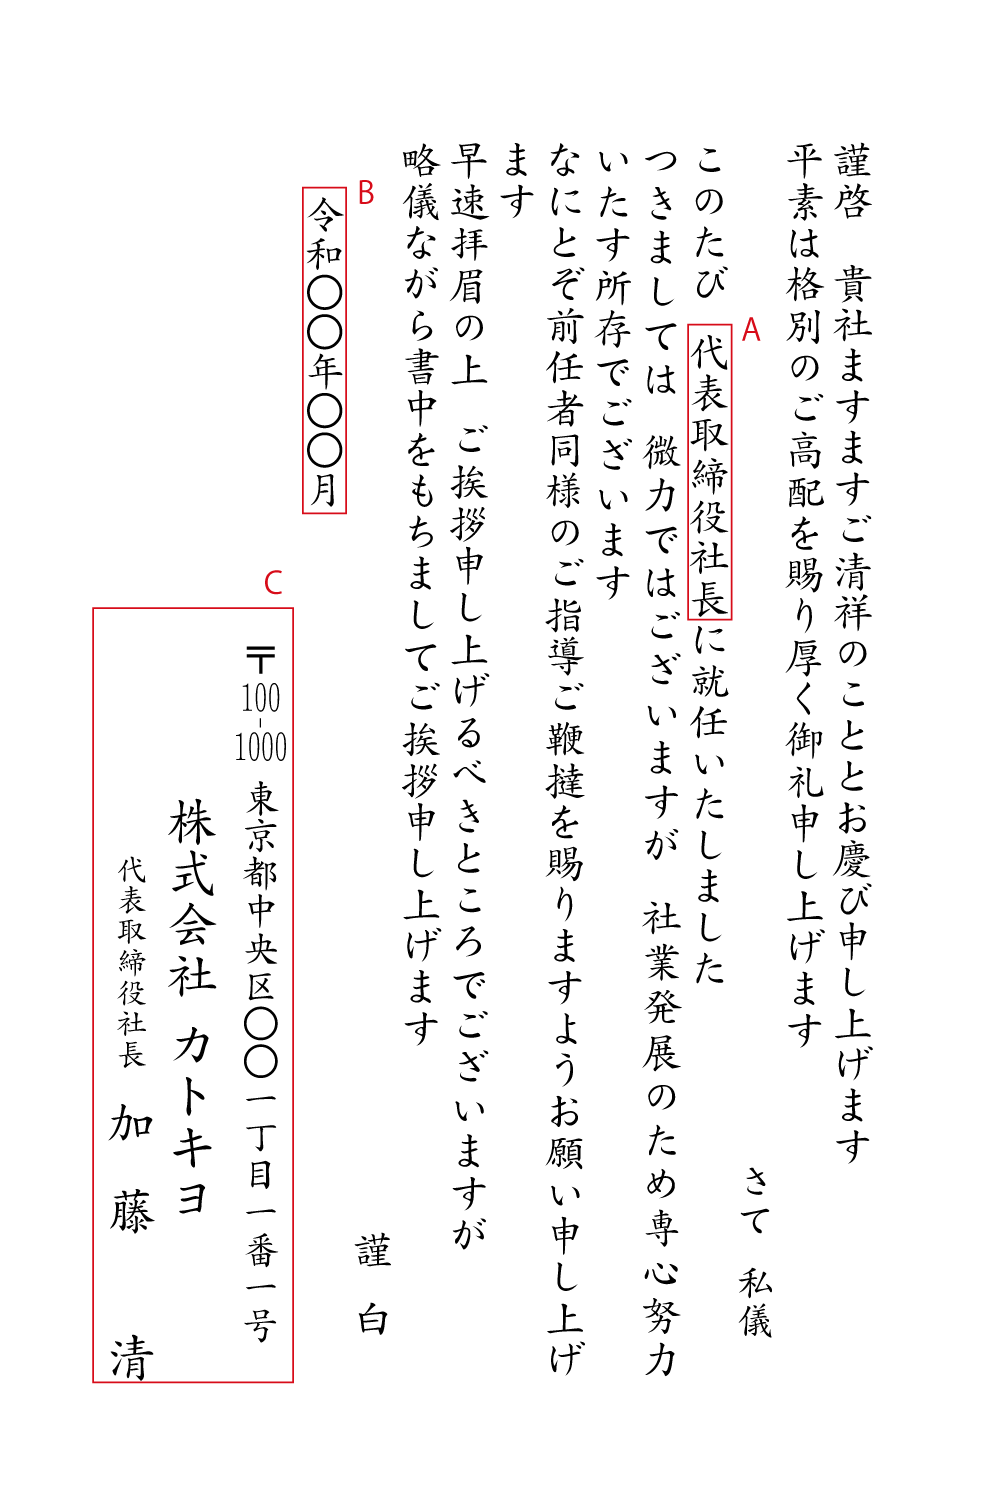 謹啓　貴社ますますご清祥のこととお慶び申し上げます
平素は格別のご高配を賜り厚く御礼申し上げます
さて　私儀
A
このたび　代表取締役社長に就任いたしました
つきましては　微力ではございますが　社業発展のため専心努力
いたす所存でございます
なにとぞ前任者同様のご指導ご鞭撻を賜りますようお願い申し上げ
ます
早速拝眉の上　ご挨拶申し上げるべきところでございますが
略儀ながら書中をもちましてご挨拶申し上げます
謹白
B
令和〇〇年〇〇月
C
〒100-1000 東京都中央区〇〇一丁目一番一号
株式会社 カトキヨ
代表取締役社長　加藤　清